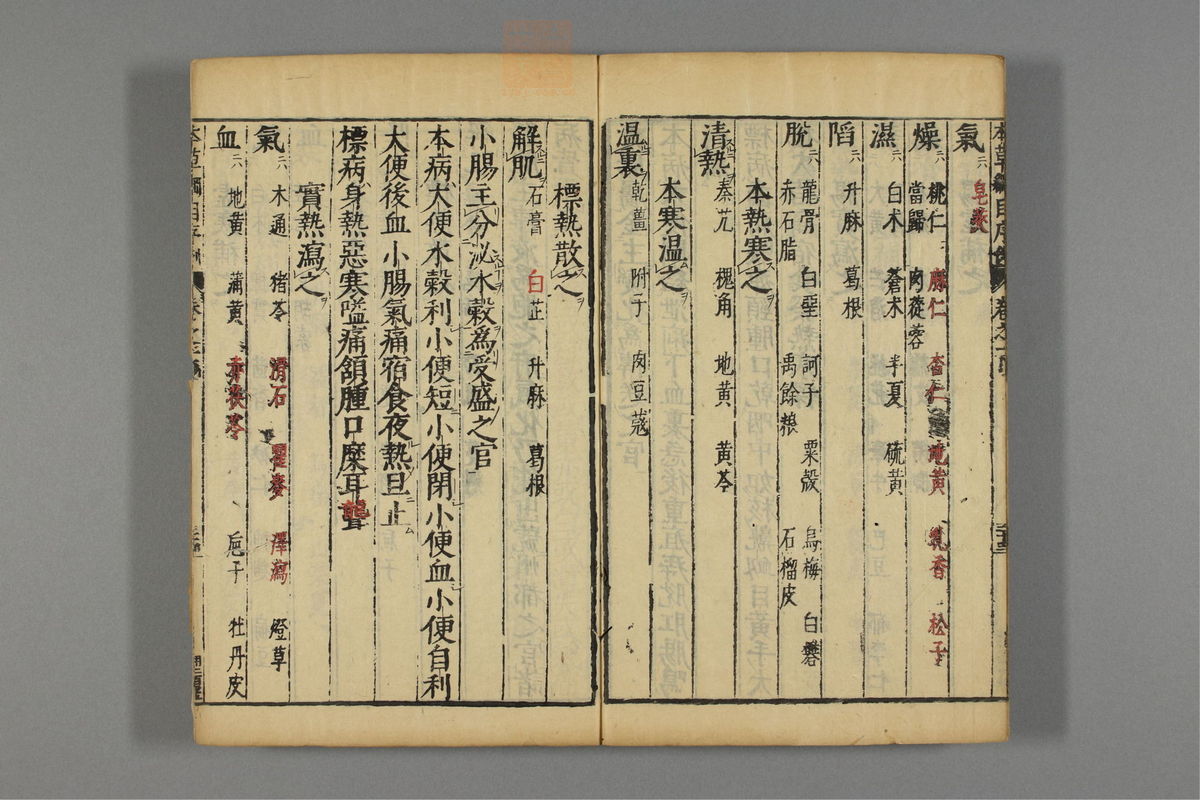 氣 皂莢
燥 桃仁 麻仁 杏仁 地黃 乳香 松子
當歸 肉蓯蓉
濕 白术 蒼术 半夏 硫黃
陷 升麻 葛根
脫 龍骨 白堊 訶子 粟殼 烏梅 白礬
赤石脂 禹餘粮 石榴皮
本熱寒之
清熱 秦艽 槐角 地黃 黃芩
本寒溫之
温裏 乾薑 附子 肉豆蔻
標熱散之
解肌 石膏 白芷 升麻 葛根
小腸主分泌水穀爲受盛之官
本病大便水穀利小便短小便閉小便血小便自利
大便後血小腸氣痛宿食夜熱旦止
標病身熱惡寒嗌痛頷腫口糜耳聾
實熱瀉之
氣 木通 猪苓 滑石 瞿麥 澤瀉 燈草
血 地黃 蒲黃 赤茯苓 巵子 牡丹皮